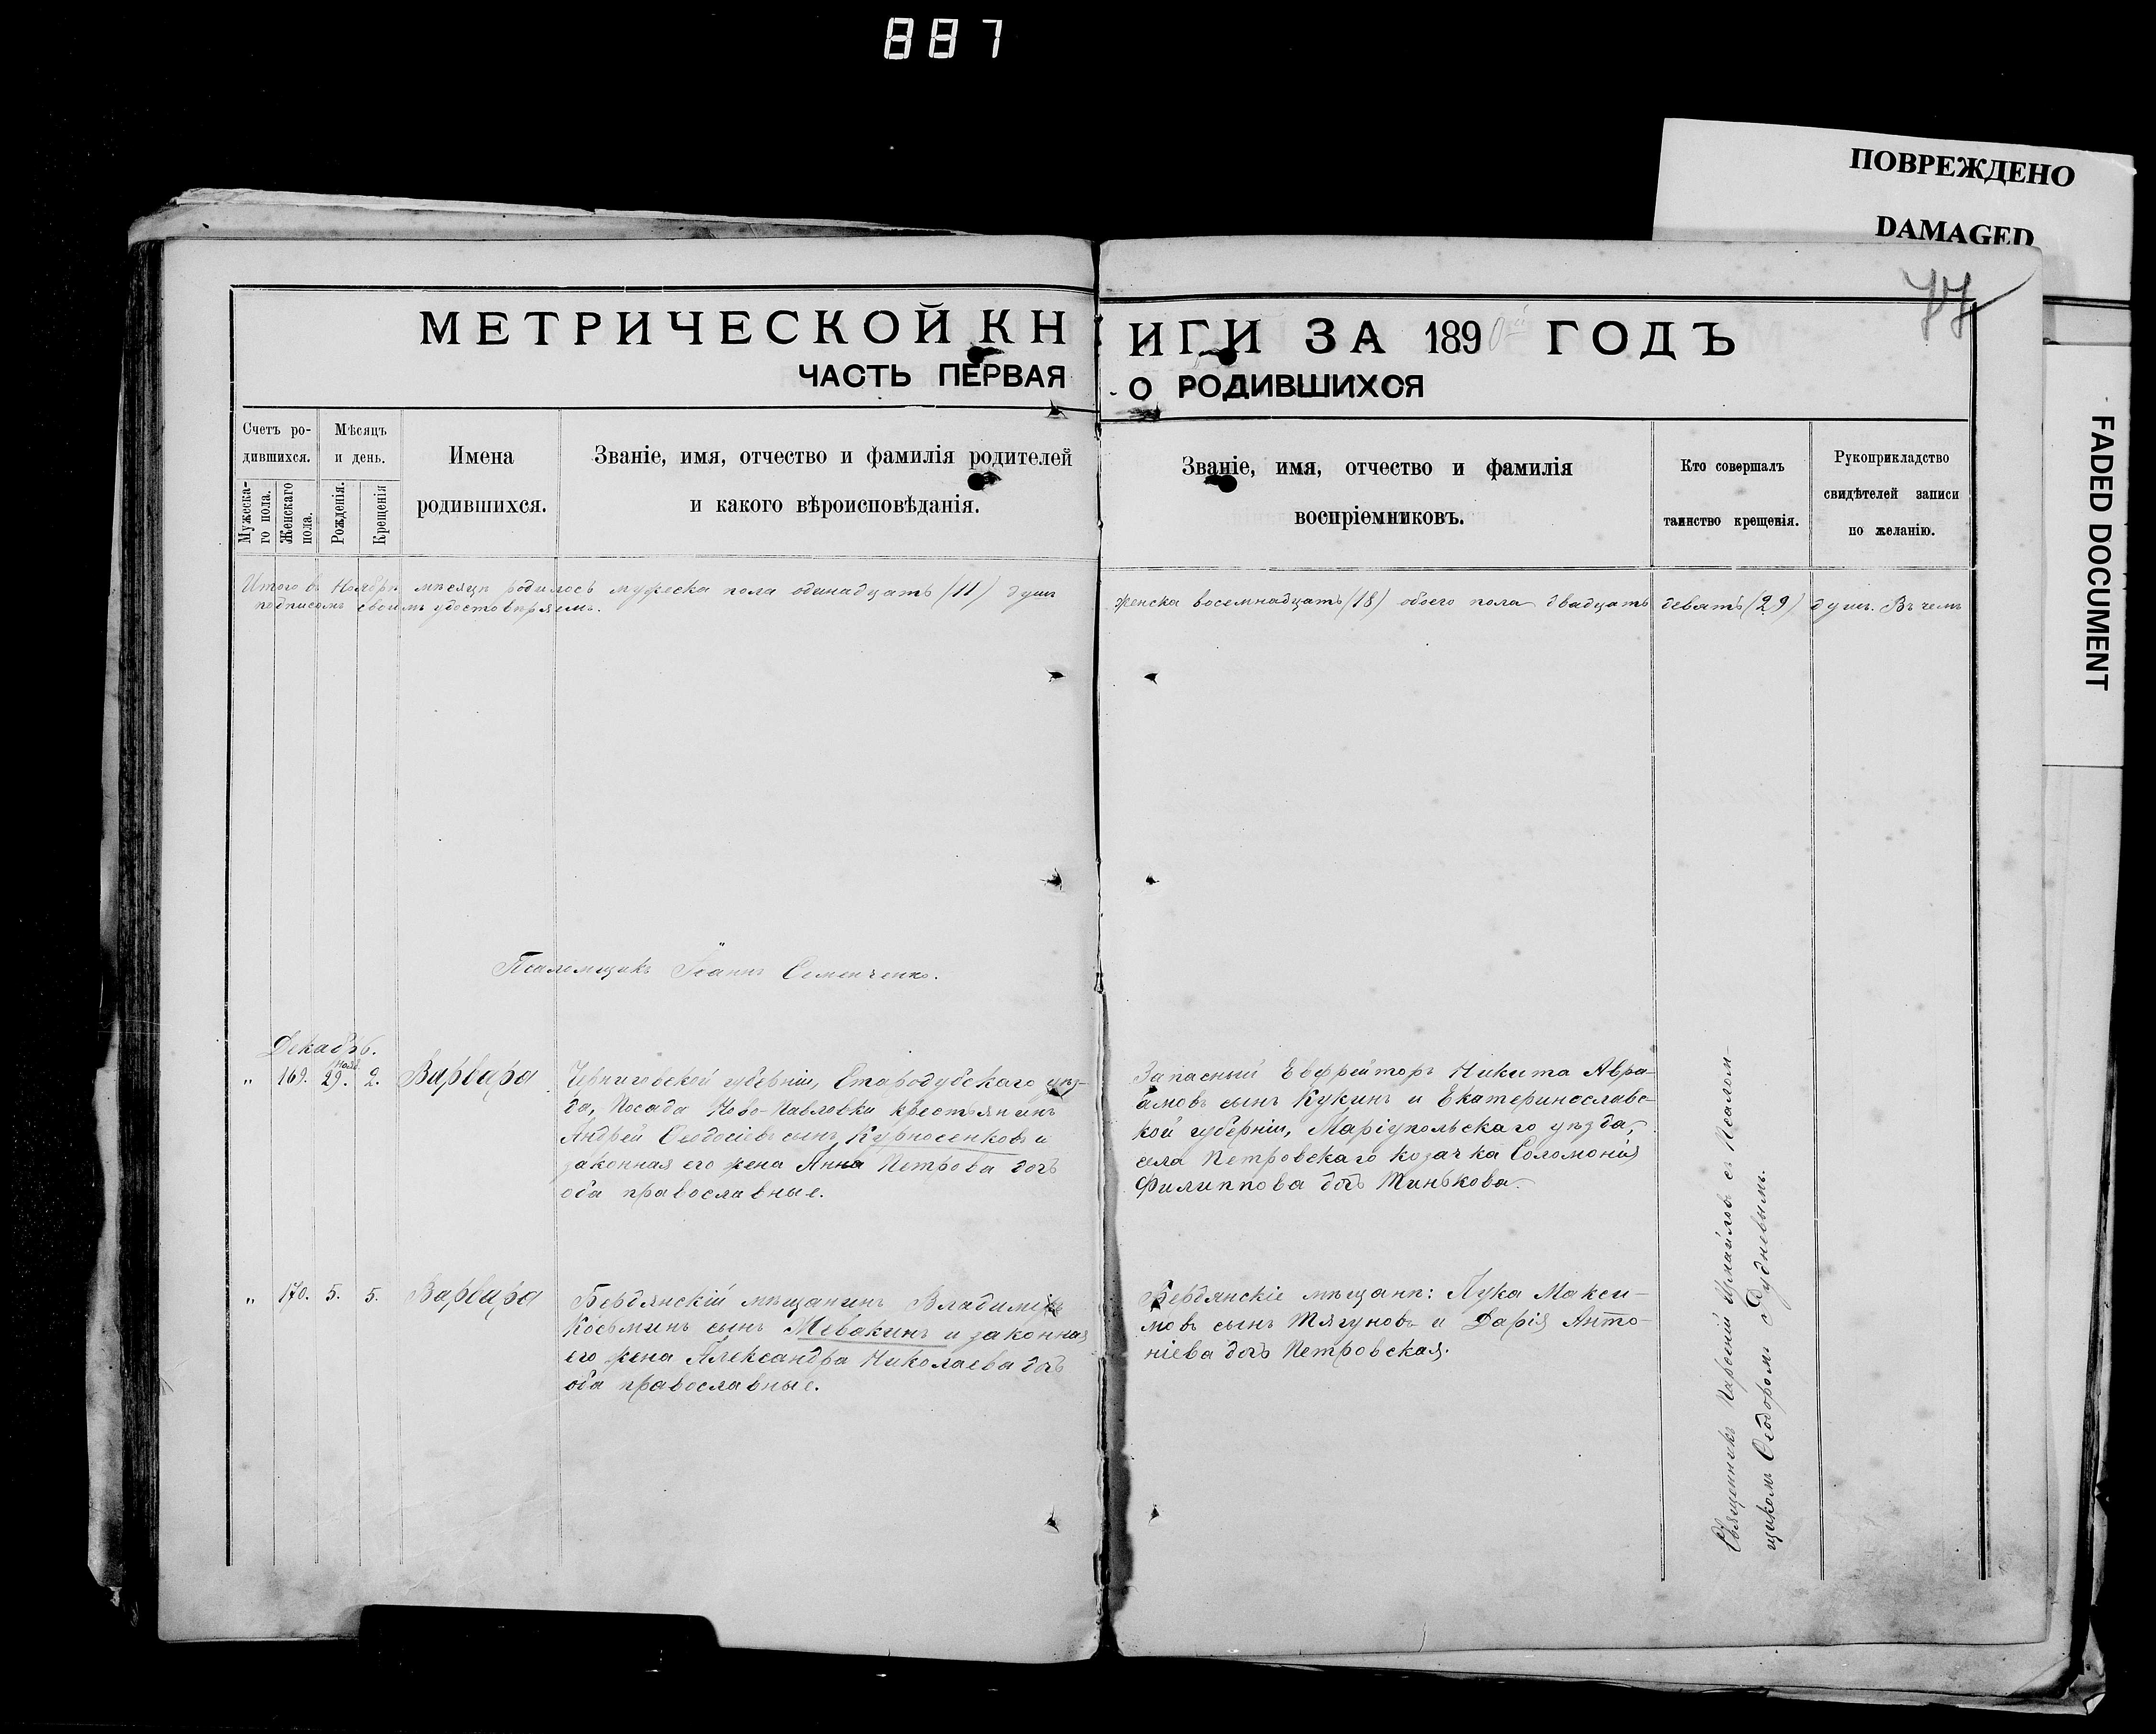 887
ПОВРЕЖДЕНО
DAMAGED
FADED DOCUMENT
77
МЕТРИЧЕСКОЙ КНИГИ ЗА 1890й ГОДЪ
ЧАСТЬ ПЕРВАЯ О РОДИВШИХСЯ
Счетъ ро-
дившихся.
Мужеска-
го пола.
Женскаго
пола.
Мѣсяцъ
и день.
Рожденія.
Крещенія
Имена
родившихся.
Званіе, имя, отчество и фамилія родителей
и какого вѣроисповѣданія.
Званіе, имя, отчество и фамилія
воспріемниковъ.
Кто совершалъ
таинство крещенія.
Рукоприкладство
свидѣтелей записи
по желанію.
Итого въ Ноябрѣ мѣсяцѣ родилось мужеска пола одинадцать (11) душъ женска восемнадцать (18) обоего пола двадцать девять (29) душъ. Въ чемъ
подписомъ своимъ удостовѣряемъ.
Псаломщикъ Іоаннъ Семенченко.
Декабрь.
" 169. Нояб. 29. 2. Варвара
Черниговской губерніи, Стародубскаго уѣз-
да, Посада Ново-Павловки крестьянинъ
Андрей Ѳеодосіевъ сынъ Курносенковъ и
законная его жена Анна Петрова дочь
оба православные.
Запасный Ефрейторъ Никита Авра-
амовъ сынъ Кукинъ и Екатеринославс-
кой губерніи, Маріупольскаго уѣзда,
села Петровскаго козачка Соломонія
Филиппова дочь Минькова.
" 170. 5. 5. Варвара
Бердянскій мѣщанинъ Владиміръ
Косьминъ сынъ Мевакинъ и законная
его жена Александра Николаева дочь
оба православные.
Бердянскіе мѣщане: Лука Макси-
мовъ сынъ Тягуновъ и Дарія Анто-
ніева дочь Петровская.
Священникъ Михайловъ съ Псалом-
щикомъ Ѳеодоромъ Дудневымъ.